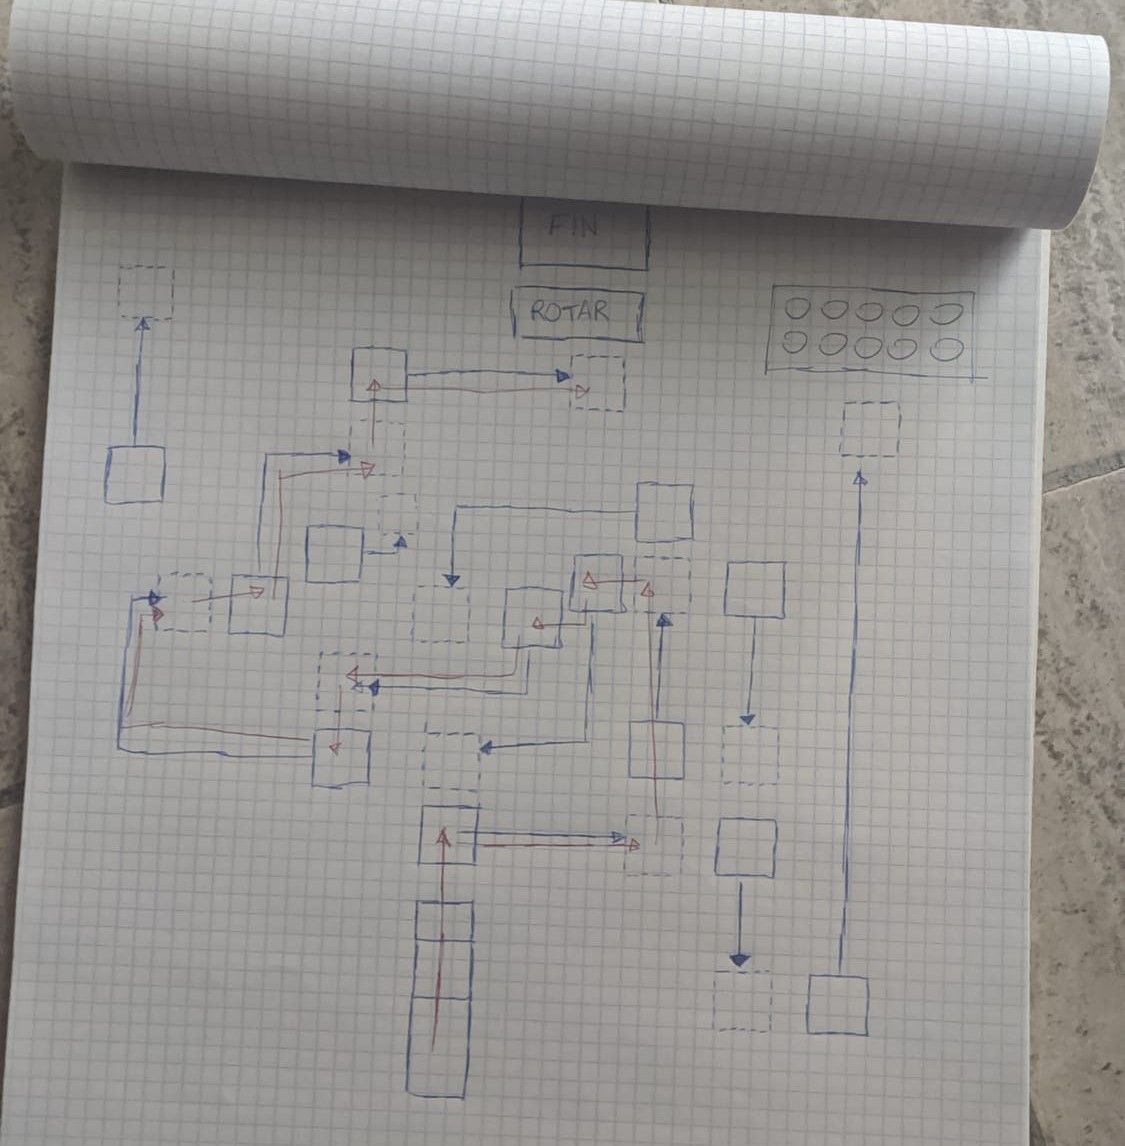 FIN
ROTAR